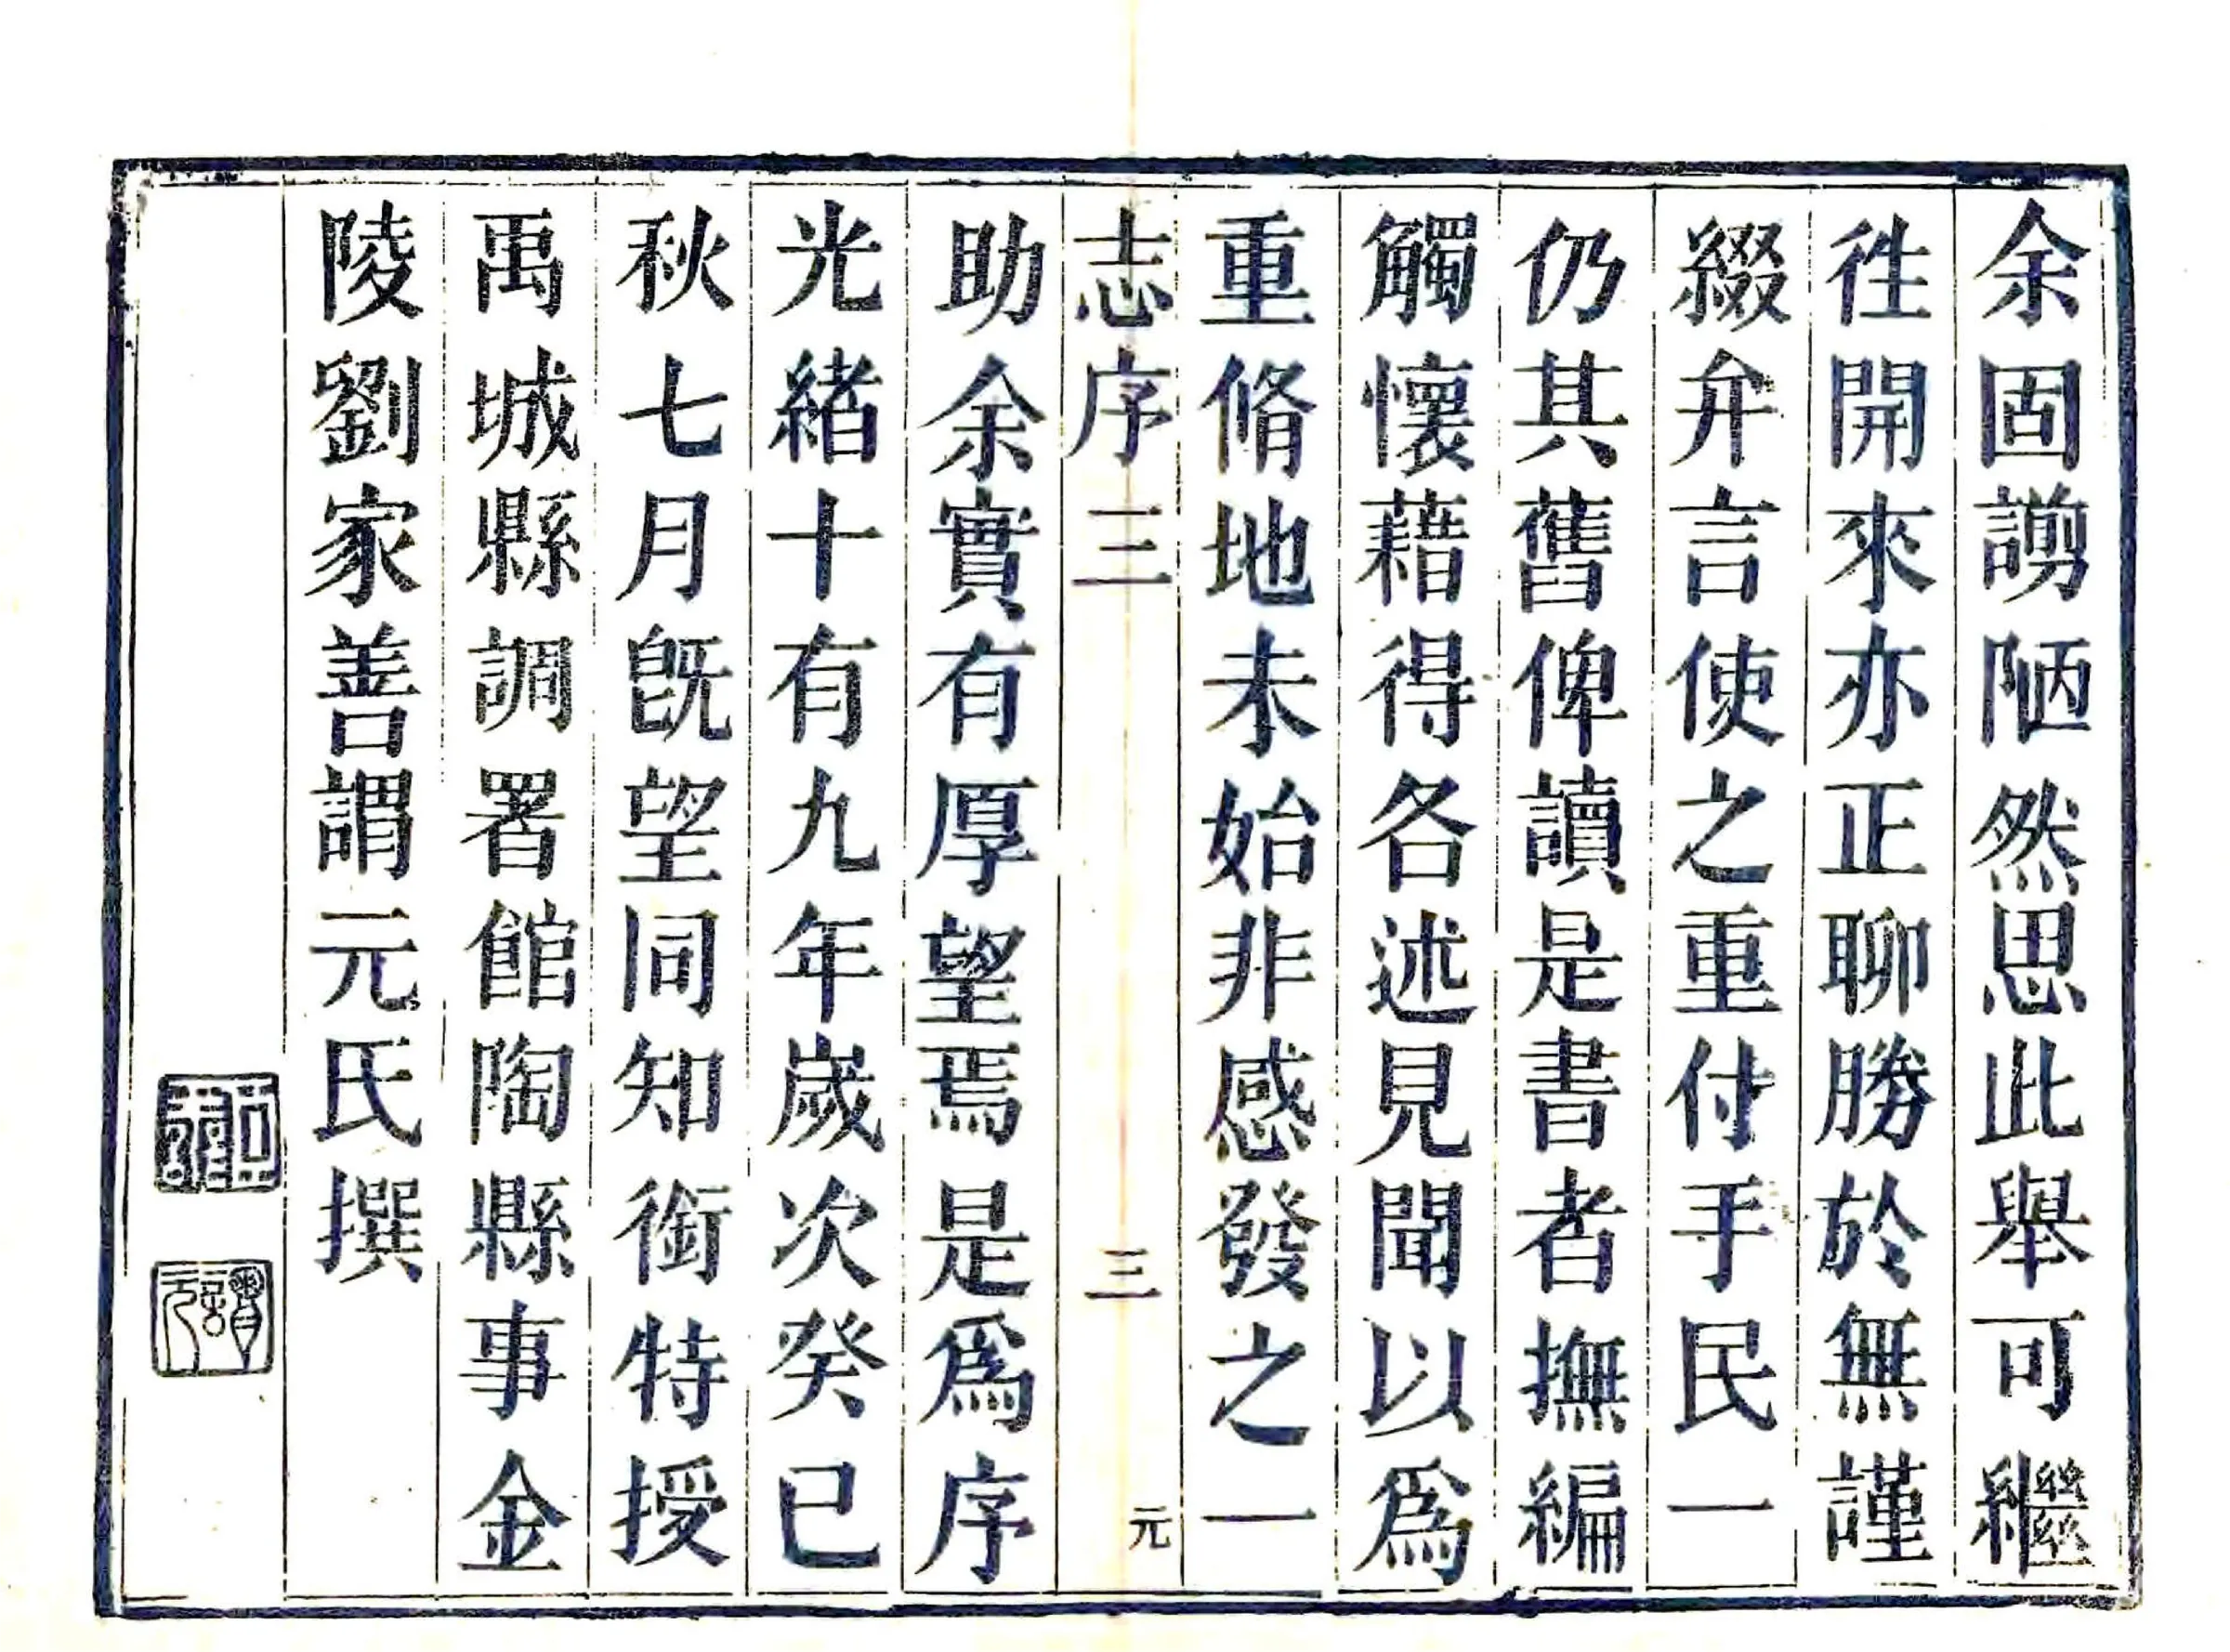 余固謭陋然思此舉可繼
徃開來亦正聊勝於無謹
綴弁言使之重付手民一
仍其舊俾讀是書者撫編
觸懷藉得各述見聞以爲
重脩地未始非感發之一
志序三 三 元
助余實有厚望焉是爲序
光緒十有九年歲次癸巳
秋七月旣望同知銜特授
禹城縣調署館陶縣事金
陵劉家善謂元氏撰
謂元